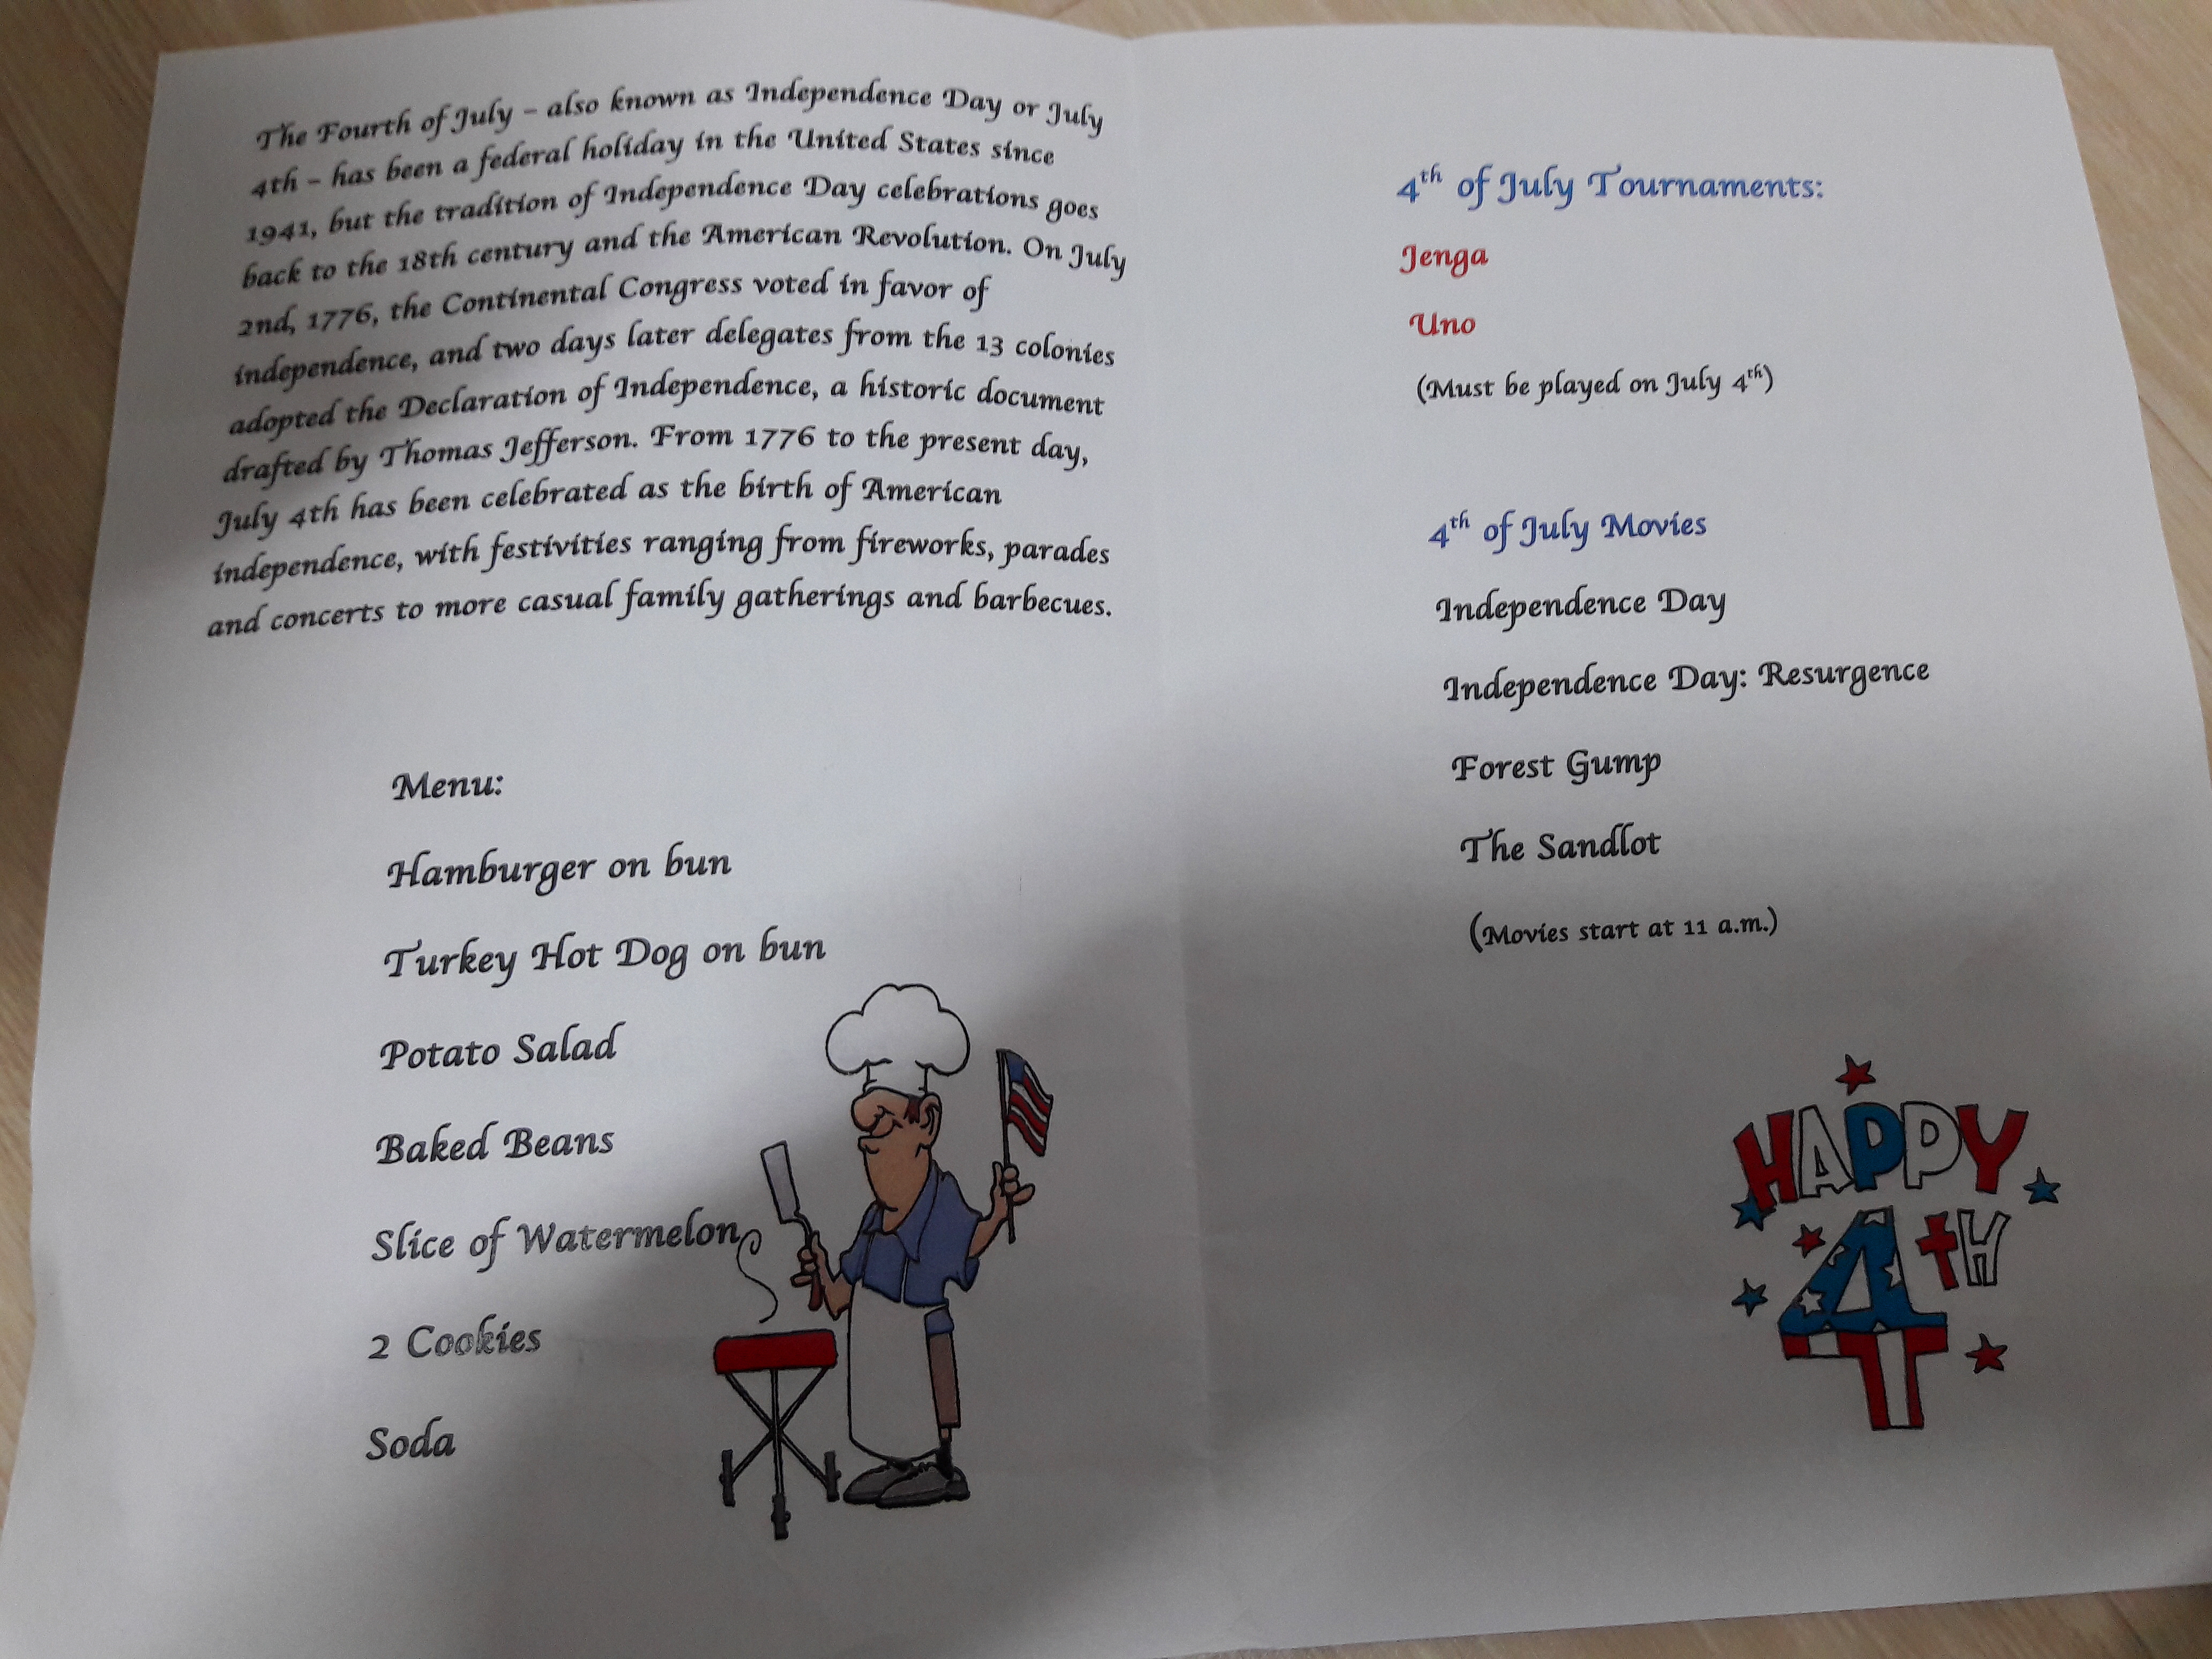 The Fourth of July – also known as Independence Day or July
4th – has been a federal holiday in the United States since
1941, but the tradition of Independence Day celebrations goes
back to the 18th century and the American Revolution. On July
2nd, 1776, the Continental Congress voted in favor of
independence, and two days later delegates from the 13 colonies
adopted the Declaration of Independence, a historic document
drafted by Thomas Jefferson. From 1776 to the present day,
July 4th has been celebrated as the birth of American
independence, with festivities ranging from fireworks, parades
and concerts to more casual family gatherings and barbecues.
Menu:
Hamburger on bun
Turkey Hot Dog on bun
Potato Salad
Baked Beans
Slice of Watermelon
2 Cookies
Soda
4th of July Tournaments:
Jenga
Uno
(Must be played on July 4th)
4th of July Movies
Independence Day
Independence Day: Resurgence
Forest Gump
The Sandlot
(Movies start at 11 a.m.)
HAPPY
4tH